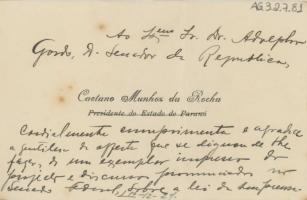 AG3.2.7.81
Ao Exmo Sr. Dr. Adolpho
Gordo, D. Senador da Republica,
Caetano Munhoz da Rocha
Presidente do Estado do Paraná
Cordialmente cumprimenta e agradece
a gentileza da offerta que se dignou de lhe
fazer, de um exemplar impresso do
projecto e discurso pronunciado no
Senado Federal, sobre a lei da imprensa